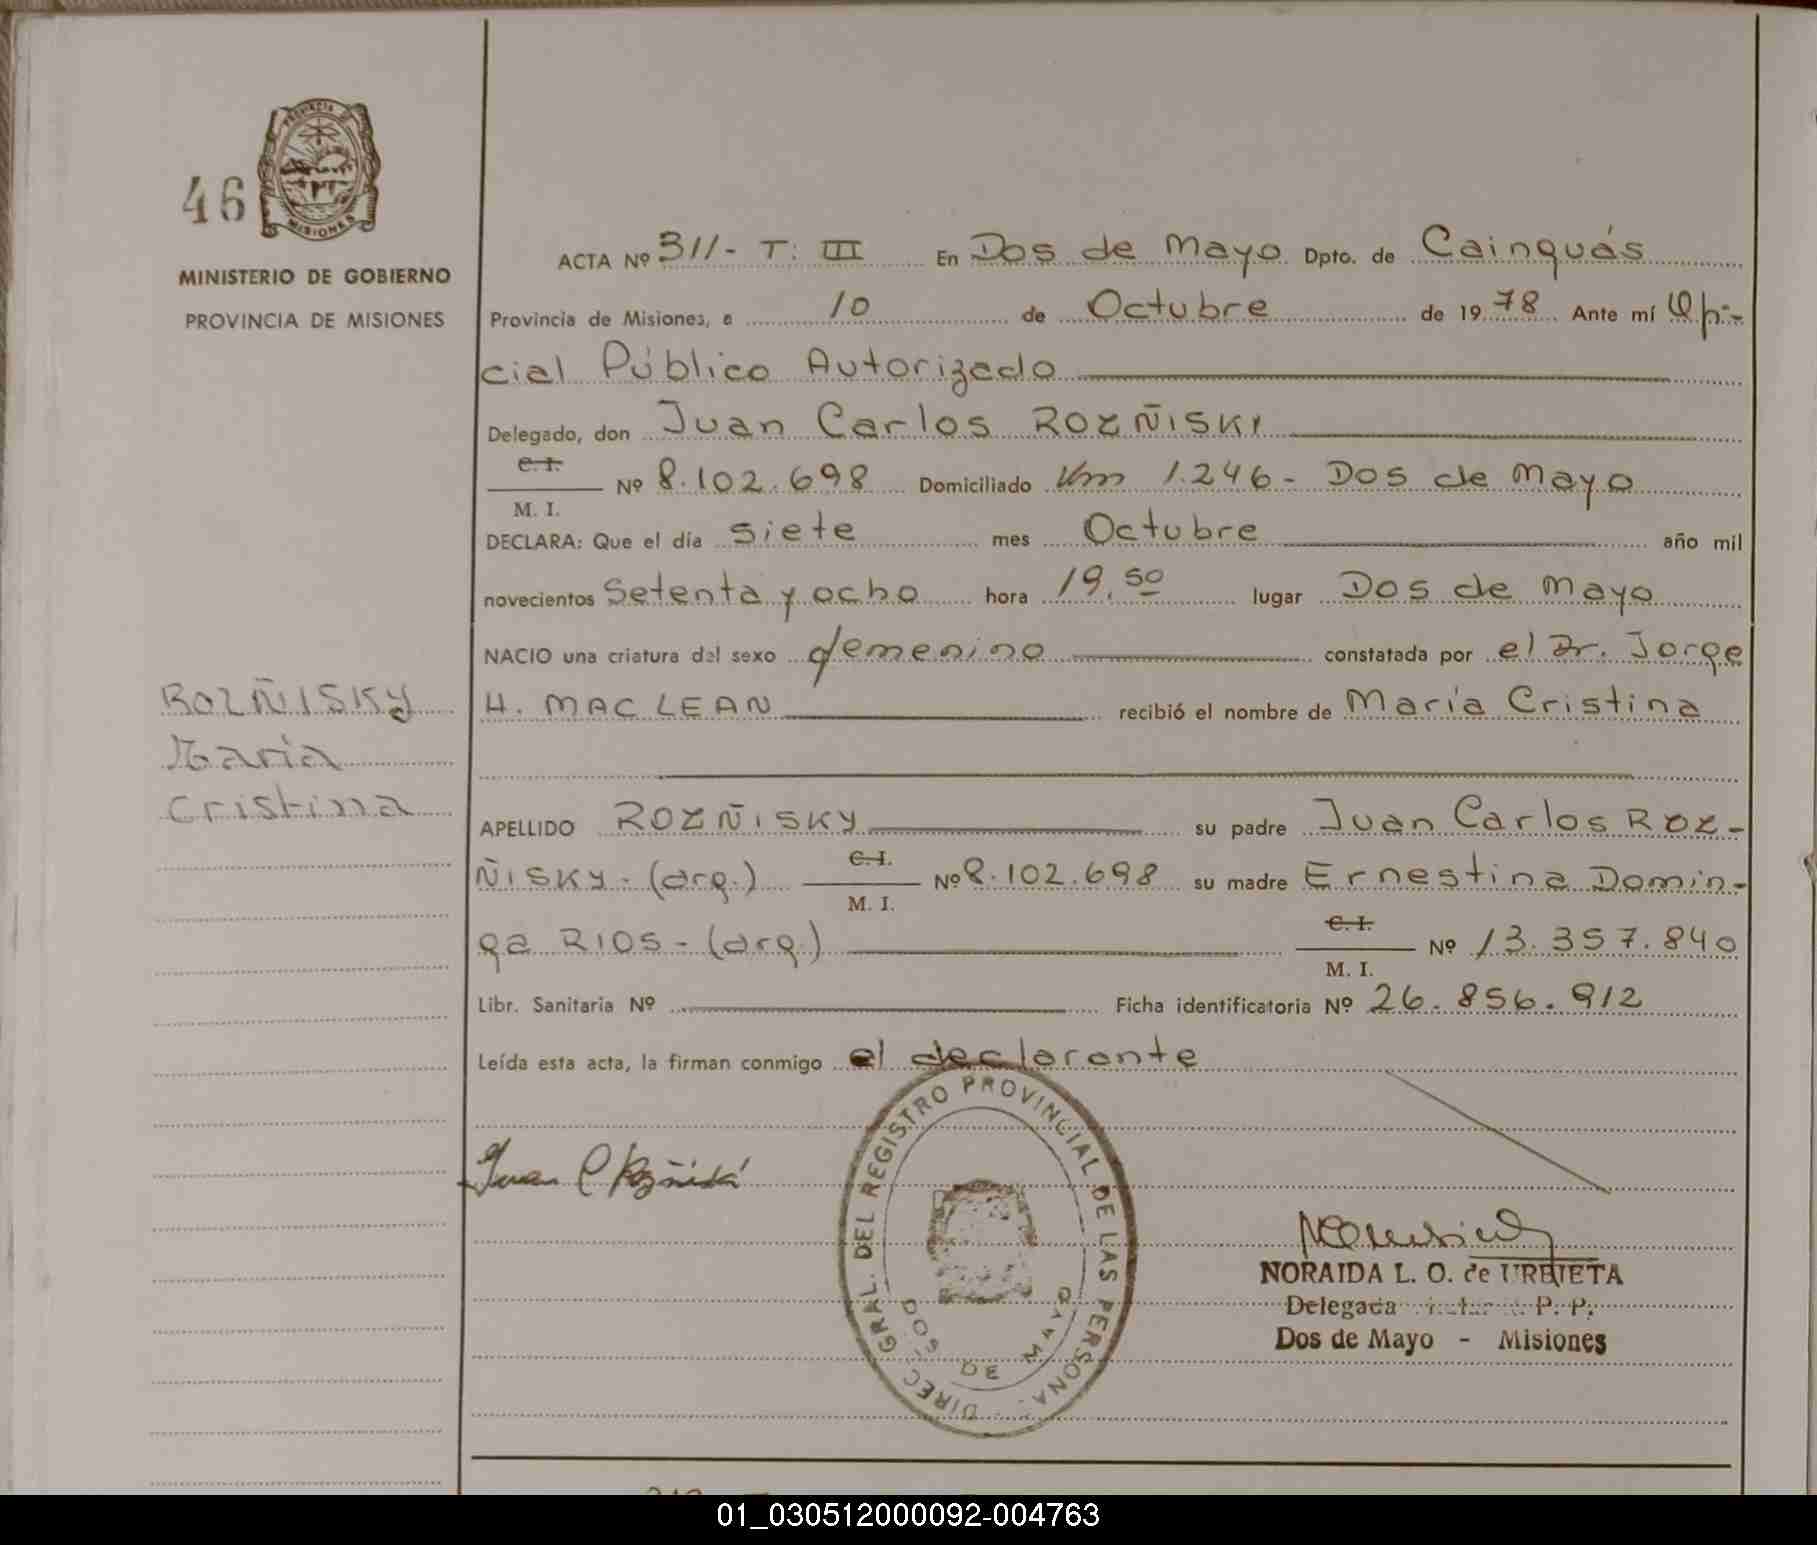 PROVINCIA DE
MISIONES
46
MINISTERIO DE GOBIERNO
PROVINCIA DE MISIONES
ROZÑISKY
María
Cristina
ACTA Nº 311- T: III En Dos de Mayo Dpto. de Cainguás
Provincia de Misiones, a 10 de Octubre de 1978 Ante mí Ofi-
cial Público Autorizado
Delegado, don Juan Carlos ROZÑISKY
C.I.
M. I.
Nº 8.102.698 Domiciliado Km 1.246- Dos de Mayo
DECLARA: Que el día siete mes Octubre año mil
novecientos Setenta y ocho hora 19,50 lugar Dos de Mayo
NACIO una criatura del sexo femenino constatada por el Dr. Jorge
H. MAC LEAN recibió el nombre de María Cristina
APELLIDO ROZÑISKY su padre Juan Carlos ROZ-
ÑISKY- (arg.) C.I.
M. I.
Nº 8.102.698 su madre Ernestina Domin-
ga RIOS- (arg.) C.I.
M. I.
Nº 13.357.840
Libr. Sanitaria Nº Ficha identificatoria Nº 26.856.912
Leída esta acta, la firman conmigo el declarante
DIREC. GRAL. DEL REGISTRO PROVINCIAL DE LAS PERSONA
DOS DE MAYO
Juan C
NORAIDA L. O. de URBIETA
Delegada P. P.
Dos de Mayo - Misiones
01_030512000092-004763